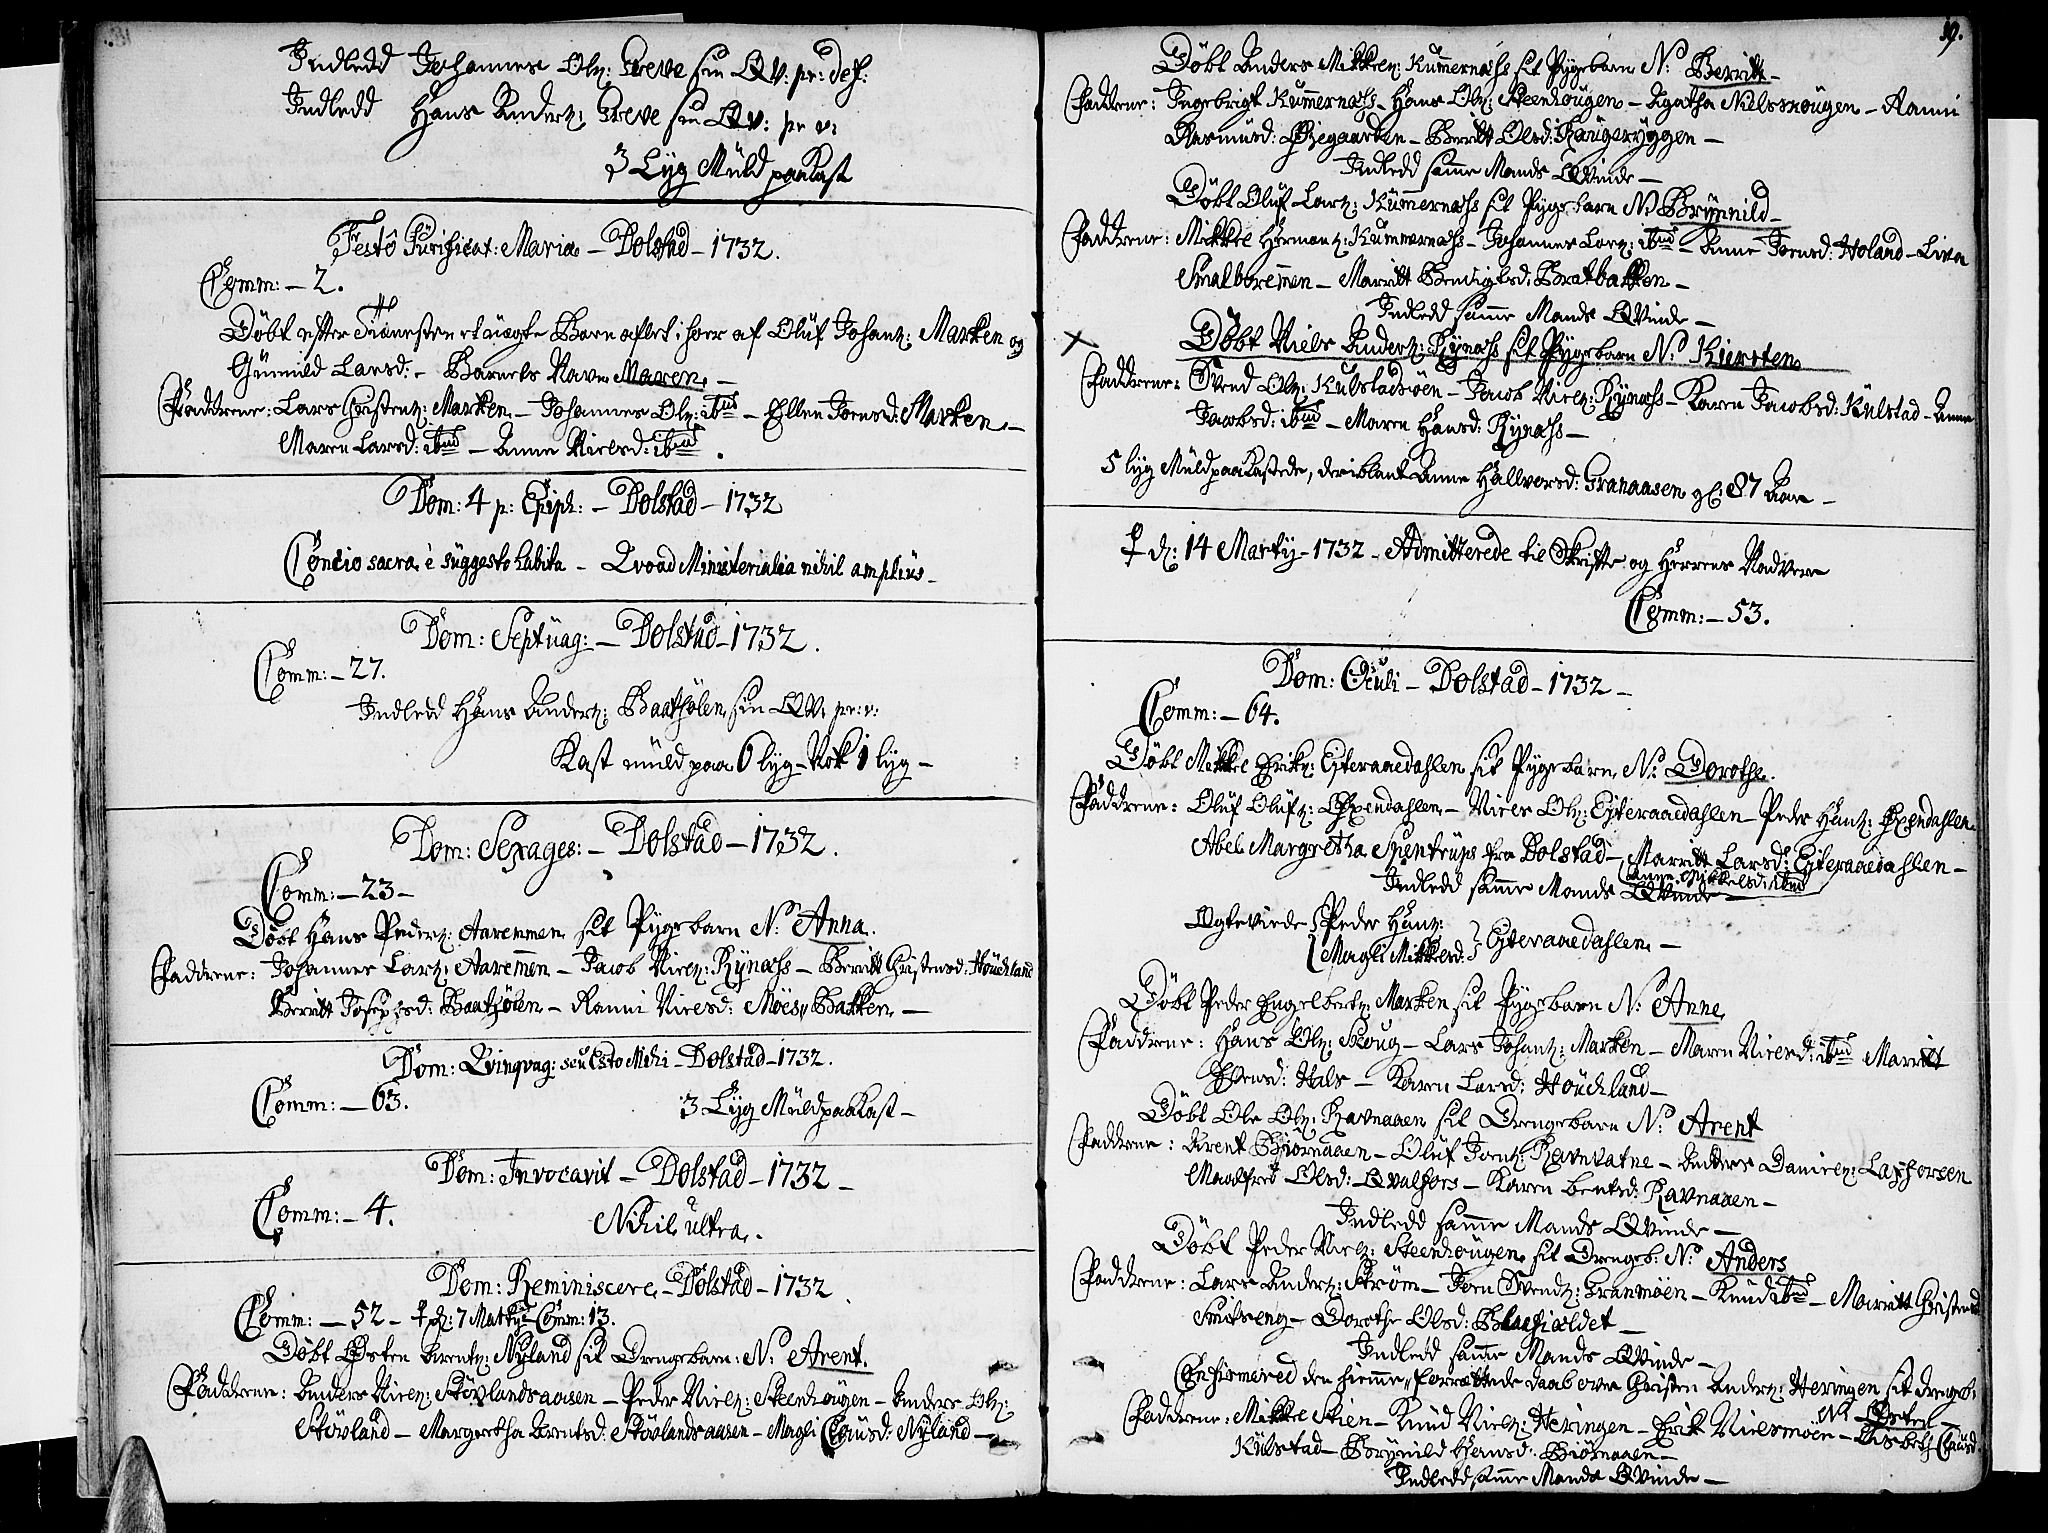 Indledd Johannes Olß: Greve sin QV: pr: def:
Indledd Hans Anderß: Greve sin QV: pr v:
3 Lÿg Müld paaKast
Festô Pürificat: Mariæ – Dolstad – 1732.
Comm: – 2.
Döbt efter Tienesten et uægte Barn aflet i hoer af Olüf Johanß: Marken og
Günnild Larsd: – Barnets Navn Maren. –
Faddrene: Lars Christenß: Marken – Johannes Olß: ibid – Ellen Joensd: Marken –
Maren Larsd: ibid – Anne Nielsd: ibid.
Dom: 4 p: Epiph: – Dolstad – 1732
Concio sacra è süggesto habita – Qvoad Ministerialia nihil amplius –
Dom: Septüag: – Dolstad – 1732.
Comm: – 27.
Indledd Hans Anderß: Baathölen sin QV: pr: v:
Kast müld paa 6 lyg – Nok 1 lyg –
Dom: Sexages: – Dolstad – 1732.
Comm: – 23 –
Döbt Hans Pederß: Aaremmen sit Pÿgebarn N: Anna.
Faddrene: Johannes Larß: Aaremmen – Jacob Nielß: Rÿnæss – Berritt Christensd: Höuchland
Berritt Josephsd: Baathölen – Ranni Nielsd: Möes Bakken –
Dom: Qvinqvag: seu Esto Mihi – Dolstad – 1732.
Comm: – 63. 3 Lÿg Müld paaKast –
Dom: Invocavit – Dolstad – 1732 –
Comm: – 4. Nihil ültra.
Dom: Reminiscere – Dolstad – 1732
Comm: – 52 – ♀ d: 7 Martÿ Comm: 13.
Döbt Östen Arentß: Nÿland sit Drengebarn: N: Arent.
Faddrene: Anders Nielß: Stövlandsaasen – Peder Nielß: Steenhougen – Anders Olß:
Stövland – Margretha Arentsd: Stövlandsaasen – Magli Clausd: Nÿland –
19.
Döbt Anders Mikkelß: Kummernæss sit Pÿgebarn N: Berritt –
Faddrene: Ingebrigt Kummernæss – Hans Olß: Steenhougen – Agatha Nilsskougen – Ranni
Rasmüsd: Öiegaarden – Berritt Olsd: Haugerÿggen –
Indledd samme Mands QVinde –
Döbt Olüf Larß: Kummernæss sit Pÿgebarn N: Brÿnnild –
Faddrene: Mikkel Hermanß: Kummernæss – Johannes Larß: ibid – Anne Joensd: Holand – Liva
Smalbremmen – Marritt Bendigtsd: Bratbakken –
Indledd samme Mands QVinde –
× Döbt Niels Anderß: Rÿnæss sit Pÿgebarn N: Kiersten
Faddrene: Svend Olß: Kulstadsöen – Jacob Nielß: Rÿnæss – Karen Jacobsd: Külstad – Anne
Jacobsd: ibid – Maren Hansd: Rÿnæss –
5 lyg Müld paaKastede, deriblant Anne Hallvorsd: Granaasen gl: 87 Aar –
♀ d: 14 Martÿ – 1732 – Admitterede til Skrifte og Herrens Nadvere
Comm: – 53.
Dom: Oculi – Dolstad – 1732 –
Comm: – 64.
Döbt Mikkel Erikß: Eÿteraaedahlen sit Pÿgebarn N: Dorothe.
Faddrene: Olüf Olüfß: Öxendahlen – Niels Olß: Eÿteraaedahlen – Peder Hanß: Öxendahlen
Abel Margretha Spentrups fra Dolstad – Marritt Larsd: Eÿteraaedahlen –
Anne Mikkelsd: ibid
Indledd samme Mands QVinde –
Ægtevirde Peder Hanß: Magli Mikkelsd: Eÿteraaedahlen –
Döbt Peder Engelbertß: Marken sit Pÿgebarn N: Anne
Faddrene: Hans Olß: Skoug – Lars Johanß: Marken – Maren Nielsd: ibid Marritt
Evensd: Hals – Karen Larsd: Höuchland –
Döbt Ole Olß: Ravnaaen sit Drengebarn N: Arent
Faddrene: Arent Biörnaaen – Olüf Joenß: Ravnvatne – Anders Danielß: Laxforsen
Maalfred Olsd: Qvalfors – Karen Bentsd: Ravnaaen –
Indledd samme Mands QVinde –
Döbt Peder Nielß: Steenhougen sit Drengeb: N: Anders
Faddrene: Lars Anderß: Ström – Joen Svendß: Granmöen – Knüd ibid – Marritt Christensd
Smitseng – Dorothe Olsd: Blaafieldet –
Indledd samme Mands QVinde –
Confirmered den hiemme forrættede daab over Christen Anderß: Heringen sit drengeb:
N: Östen –
Faddrene: Mikkel Stien – Knüd Nielß: Heringen – Erik Nielsmöen – Lisbeth Clausd
Külstad – Brÿnild Hansd: Biörnaaen –
Indledd samme Mands QVinde –